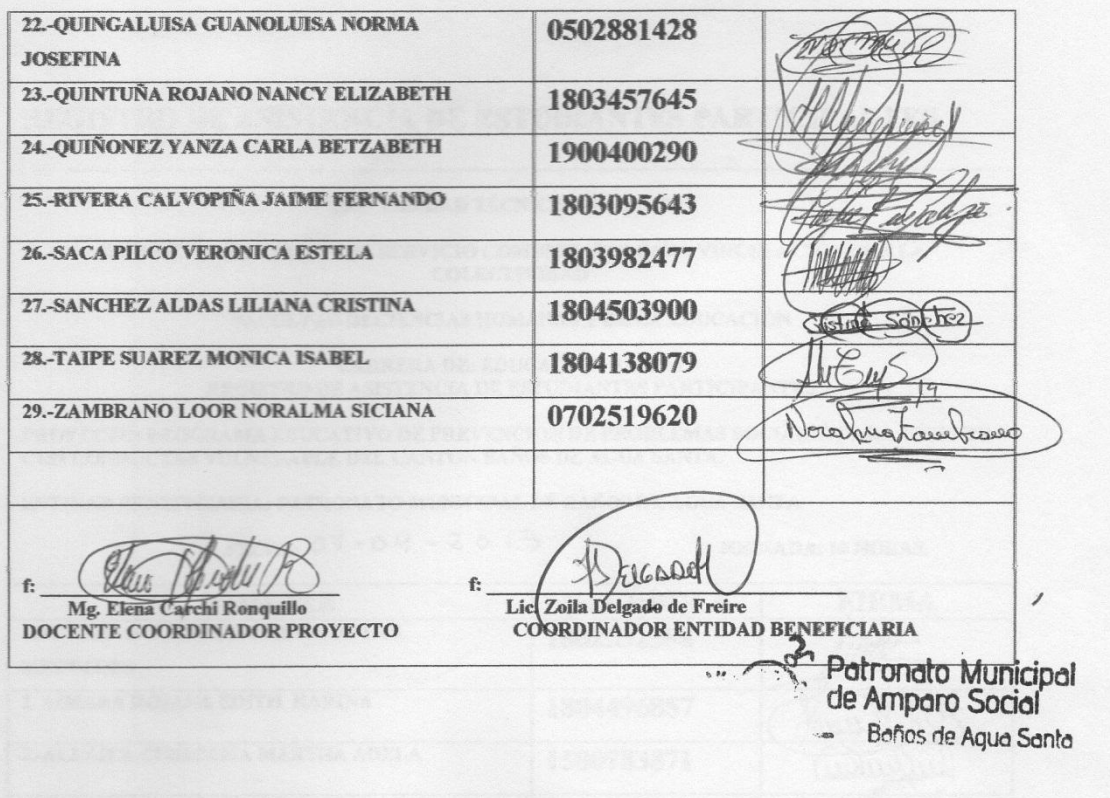 22.-QUINGALUISA GUANOLUISA NORMA JOSEFINA 0502881428
23.-QUINTUÑA ROJANO NANCY ELIZABETH 1803457645
24.-QUIÑONEZ YANZA CARLA BETZABETH 1900400290
25.-RIVERA CALVOPIÑA JAIME FERNANDO 1803095643
26.-SACA PILCO VERONICA ESTELA 1803982477
27.-SANCHEZ ALDAS LILIANA CRISTINA 1804503900 Cristina Sanchez
28.-TAIPE SUAREZ MONICA ISABEL 1804138079
29.-ZAMBRANO LOOR NORALMA SICIANA 0702519620 Noralma Zambrano
f: f:
Mg. Elena Carchi Ronquillo Lic. Zoila Delgado de Freire
DOCENTE COORDINADOR PROYECTO COORDINADOR ENTIDAD BENEFICIARIA
Patronato Municipal
de Amparo Social
Baños de Agua Santa